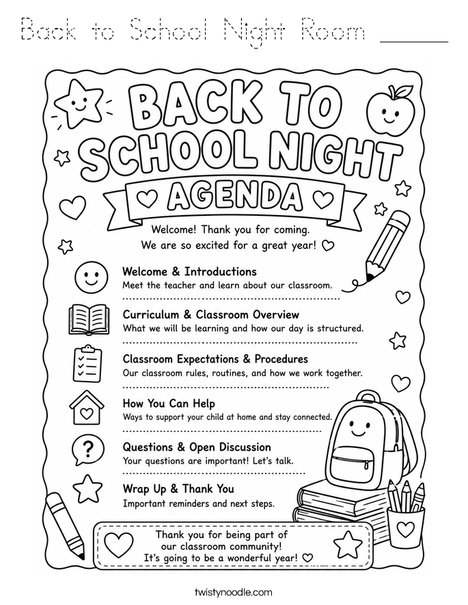 Back to School Night Room ______
BACK TO
SCHOOL NIGHT
AGENDA
Welcome! Thank you for coming.
We are so excited for a great year!
Welcome & Introductions
Meet the teacher and learn about our classroom.
Curriculum & Classroom Overview
What we will be learning and how our day is structured.
Classroom Expectations & Procedures
Our classroom rules, routines, and how we work together.
How You Can Help
Ways to support your child at home and stay connected.
?
Questions & Open Discussion
Your questions are important! Let's talk.
Wrap Up & Thank You
Important reminders and next steps.
Thank you for being part of
our classroom community!
It's going to be a wonderful year!
twistynoodle.com